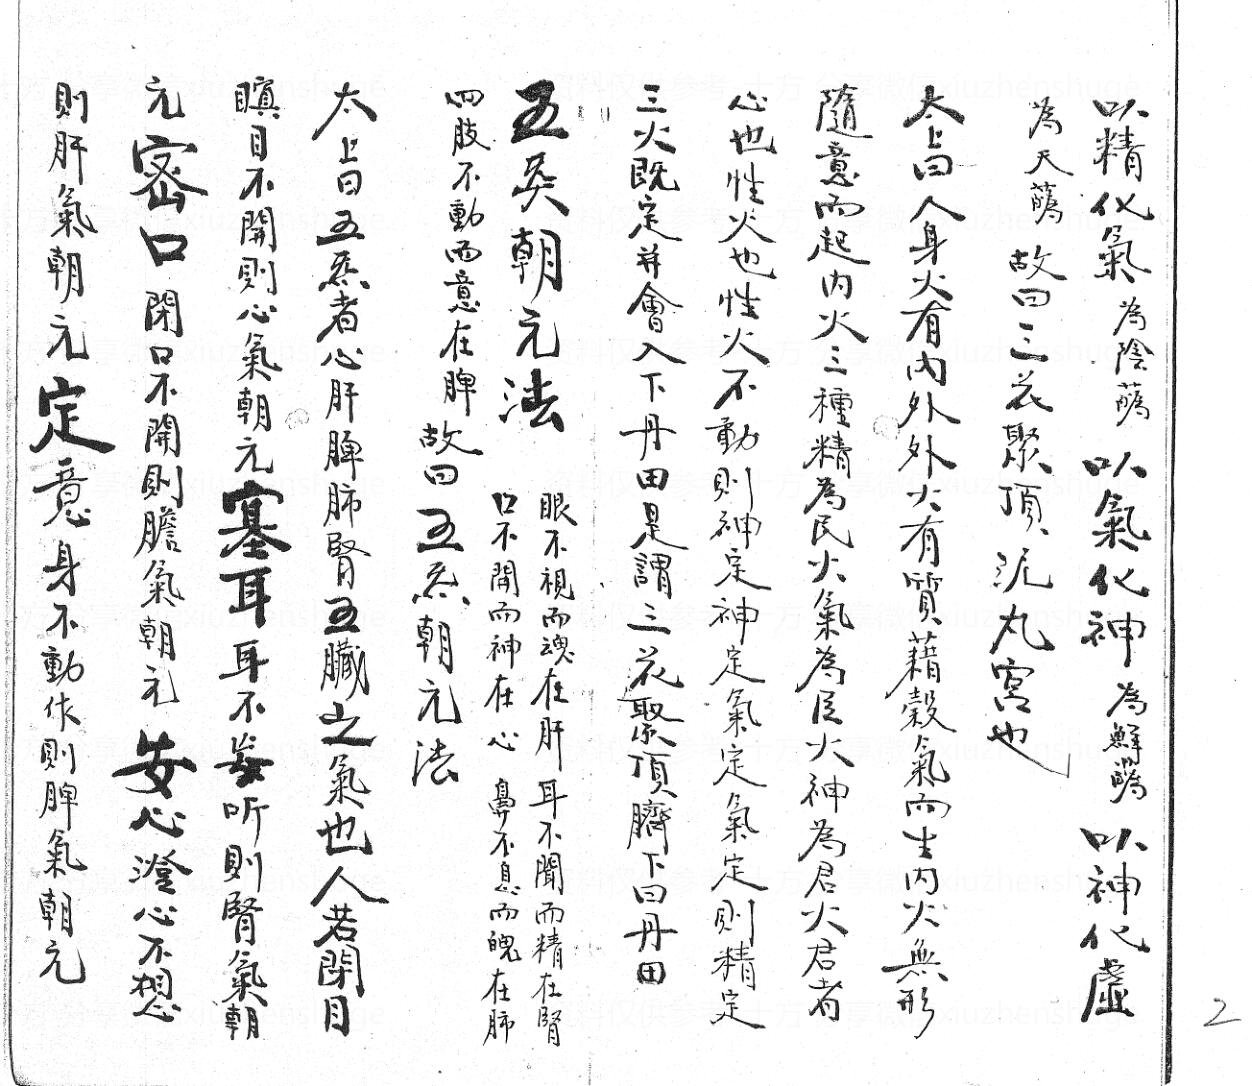 以精化氣為陰蕮以氣化神為鮮蕮以神化虛
為天蕮故曰三花聚頂泥丸宮也
太上曰人身火有內外外火有質藉穀氣而生內火無形
隨意而起內火三種精為民火氣為臣火神為君火君者
心也性火也性火不動則神定神定氣定氣定則精定
三火既定并會入下丹田是謂三花聚頂臍下曰丹田
五炁朝元法
眼不視而魂在肝耳不聞而精在腎
口不開而神在心鼻不息而魄在肺
四肢不動而意在脾故曰五炁朝元法
太上曰五炁者心肝脾肺腎五臟之氣也人若閉目
瞋目不開則心氣朝元塞耳耳不妄听則腎氣朝
元密口閉口不開則膽氣朝元安心澄心不想
則肝氣朝元定意身不動作則脾氣朝元
2